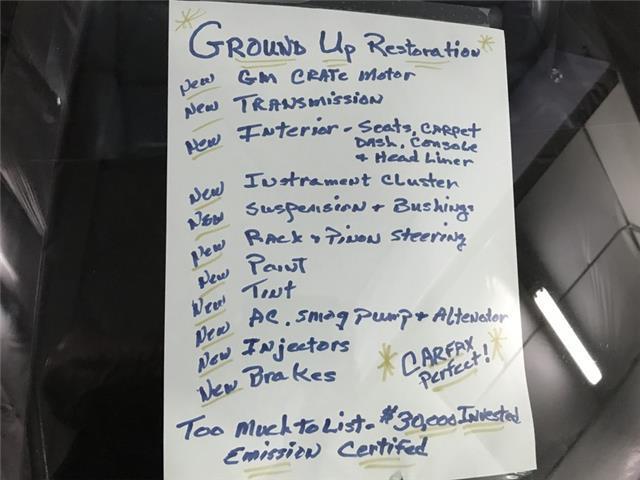 *GROUND Up Restoration*
New GM CRATe Motor
New TRANSMISSION
New Interior - Seats, CARPET
DASH, CONSOLE
& Head Liner
New Instrament Cluster
New Suspension & Bushings
New Rack & Pinon Steering
New Paint
New Tint
New AC, Smog Pump & Altenator
New Injectors
New Brakes
* CARFAX *
Perfect!
Too Much to List - $30,000 Invested
Emission Certifed